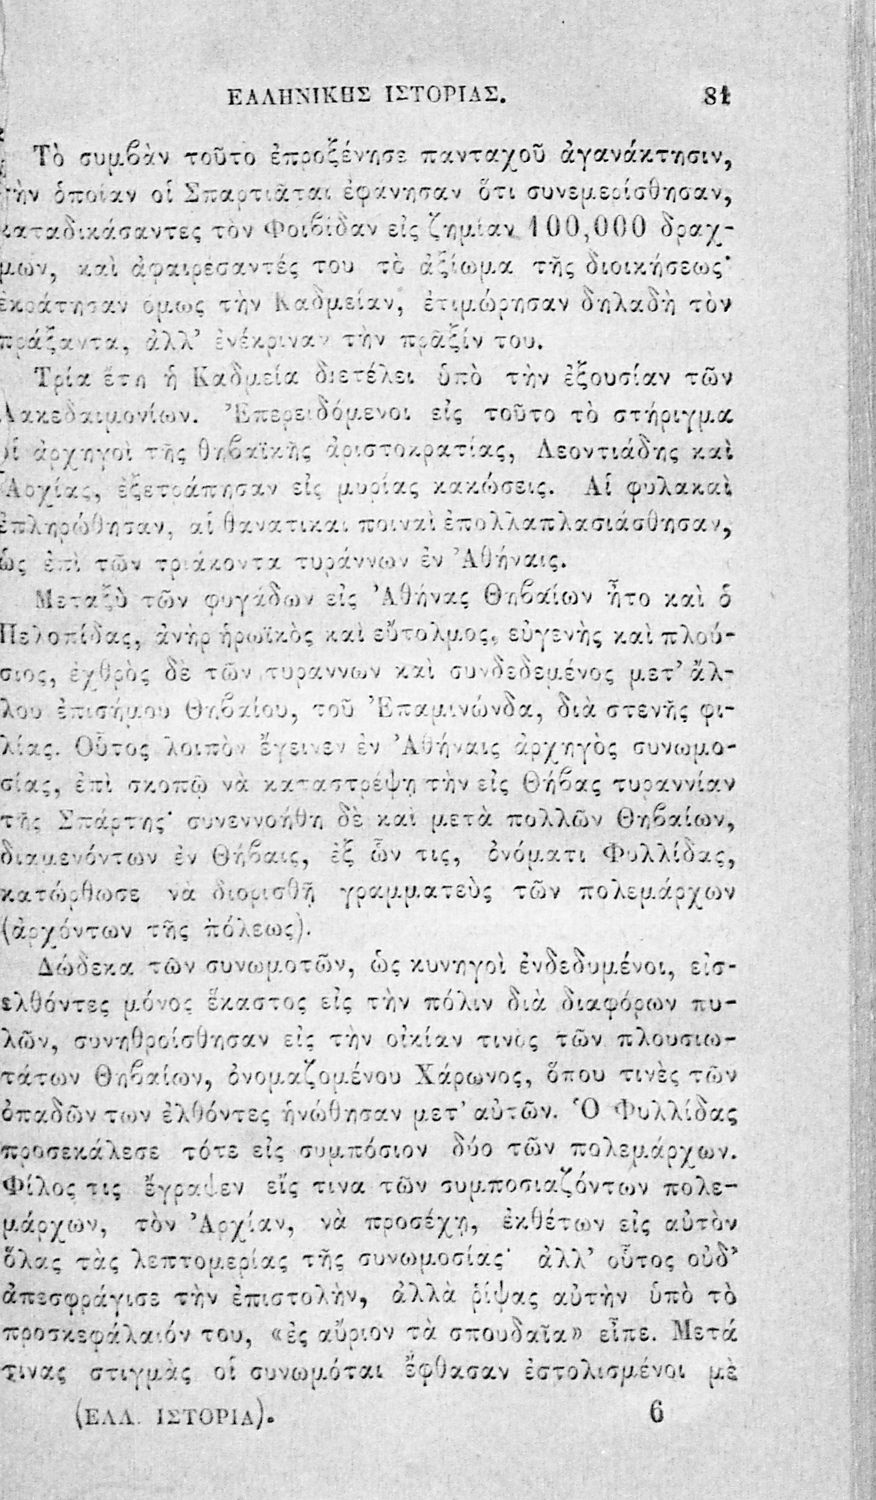 ΕΛΛΗΝΙΚΗΣ ΙΣΤΟΡΙΑΣ. 81
Τὸ συμβὰν τοῦτο ἐπροξένησε πανταχοῦ ἀγανάκτησιν,
τὴν ὁποίαν οἱ Σπαρτιᾶται ἐφάνησαν ὅτι συνεμερίσθησαν,
καταδικάσαντες τὸν Φοιβίδαν εἰς ζημίαν 100,000 δραχ-
μῶν, καὶ ἀφαιρεσαντές του τὸ ἀξίωμα τῆς διοικήσεως·
ἐκράτησαν ὅμως τὴν Καδμείαν, ἐτιμώρησαν δηλαδὴ τὸν
πράξαντα, ἀλλ’ ἐνέκριναν τὴν πρᾶξίν του.
Τρία ἔτη ἡ Καδμεία διετέλει ὑπὸ τὴν ἐξουσίαν τῶν
Λακεδαιμονίων. Ἐπερειδόμενοι εἰς τοῦτο τὸ στήριγμα
οἱ ἀρχηγοὶ τῆς θηβαϊκῆς ἀριστοκρατίας, Λεοντιάδης καὶ
Ἀρχίας, ἐξετράπησαν εἰς μυρίας κακώσεις. Αἱ φυλακαὶ
ἐπληρώθησαν, αἱ θανατικαὶ ποιναὶ ἐπολλαπλασιάσθησαν,
ὡς ἐπὶ τῶν τριάκοντα τυράννων ἐν Ἀθήναις.
Μεταξὺ τῶν φυγάδων εἰς Ἀθήνας Θηβαίων ἦτο καὶ ὁ
Πελοπίδας, ἀνὴρ ἡρωϊκὸς καὶ εὔτολμος, εὐγενὴς καὶ πλού-
σιος, ἐχθρὸς δὲ τῶν τυραννων καὶ συνδεδεμένος μετ’ ἄλ-
λου ἐπισήμου Θηβαίου, τοῦ Ἐπαμινώνδα, διὰ στενῆς φι-
λίας. Οὗτος λοιπὸν ἔγεινεν ἐν Ἀθήναις ἀρχηγὸς συνωμο-
σίας, ἐπὶ σκοπῷ νὰ καταστρέψῃ τὴν εἰς Θήβας τυραννίαν
τῆς Σπάρτης· συνεννοήθη δὲ καὶ μετὰ πολλῶν Θηβαίων,
διαμενόντων ἐν Θήβαις, ἐξ ὧν τις, ὀνόματι Φυλλίδας,
κατώρθωσε νὰ διορισθῇ γραμματεὺς τῶν πολεμάρχων
(ἀρχόντων τῆς πόλεως).
Δώδεκα τῶν συνωμοτῶν, ὡς κυνηγοὶ ἐνδεδυμένοι, εἰσ-
ελθόντες μόνος ἕκαστος εἰς τὴν πόλιν διὰ διαφόρων πυ-
λῶν, συνηθροίσθησαν εἰς τὴν οἰκίαν τινὸς τῶν πλουσιω-
τάτων Θηβαίων, ὀνομαζομένου Χάρωνος, ὅπου τινὲς τῶν
ὀπαδῶν των ἐλθόντες ἡνώθησαν μετ’ αὐτῶν. Ὁ Φυλλίδας
προσεκάλεσε τότε εἰς συμπόσιον δύο τῶν πολεμάρχων.
Φίλος τις ἔγραψεν εἴς τινα τῶν συμποσιαζόντων πολε-
μάρχων, τὸν Ἀρχίαν, νὰ προσέχῃ, ἐκθέτων εἰς αὐτὸν
ὅλας τὰς λεπτομερίας τῆς συνωμοσίας· ἀλλ’ οὗτος οὐδ’
ἀπεσφράγισε τὴν ἐπιστολὴν, ἀλλὰ ῥίψας αὐτὴν ὑπὸ τὸ
προσκεφάλαιόν του, «ἐς αὔριον τὰ σπουδαῖα» εἶπε. Μετά
τινας στιγμὰς οἱ συνωμόται ἔφθασαν ἐστολισμένοι μὲ
(ΕΛΛ. ΙΣΤΟΡΙΑ). 6